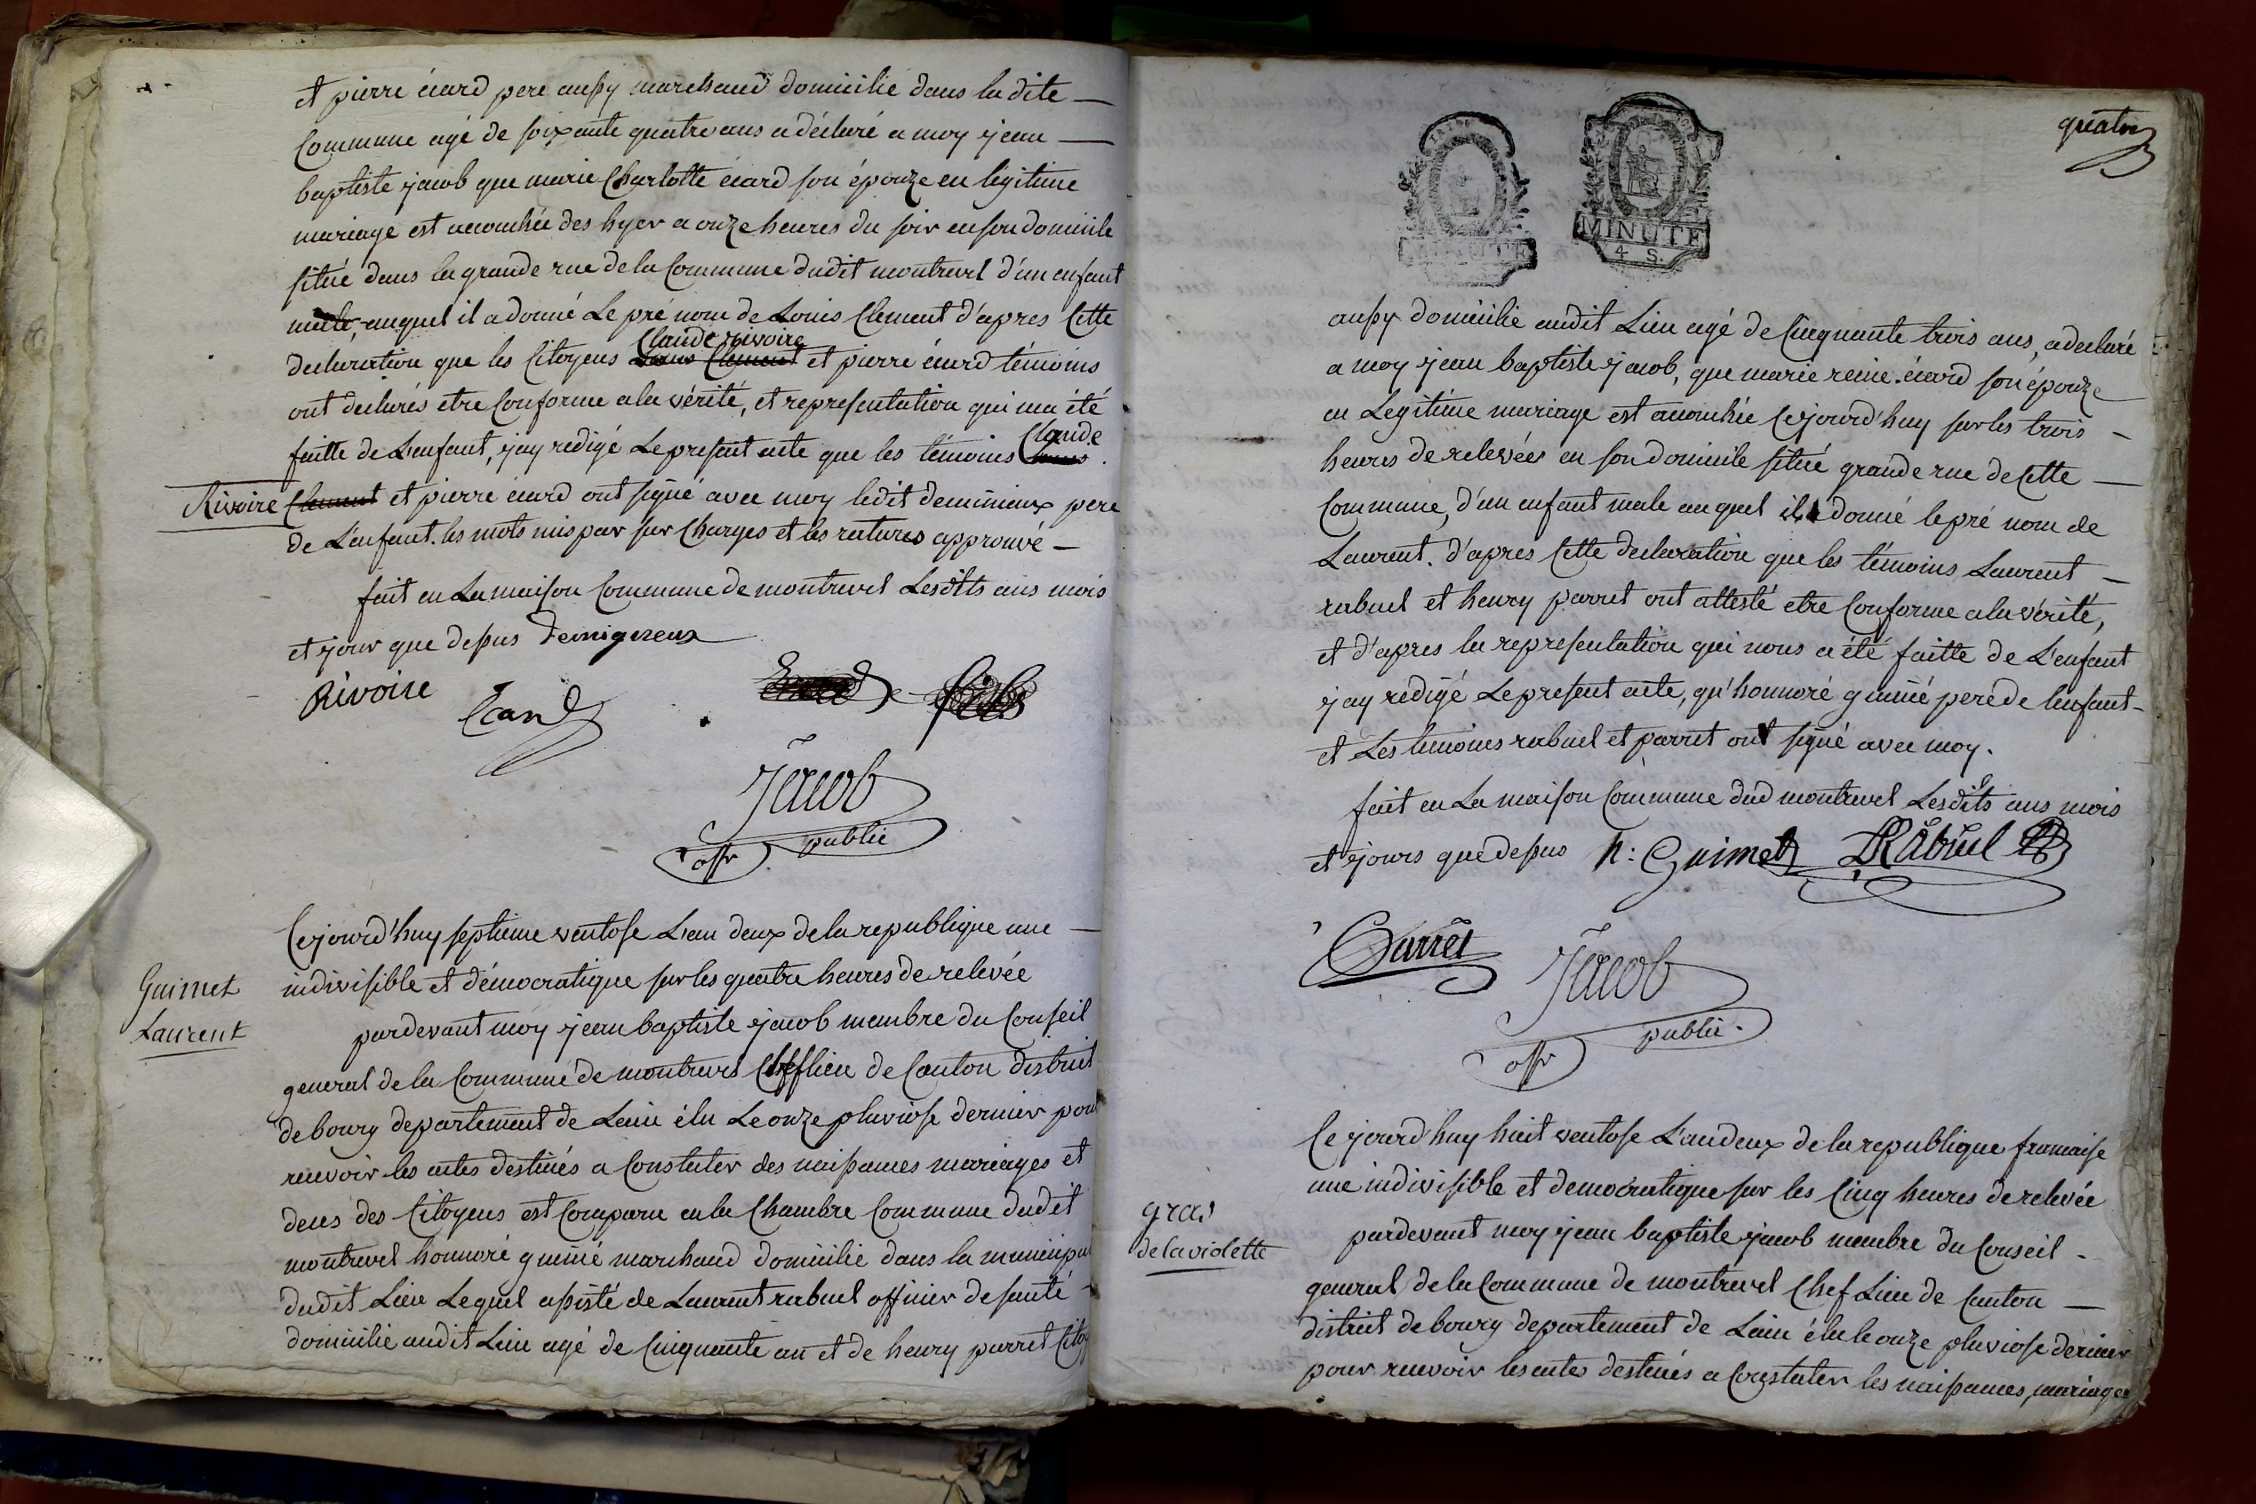 et pierre écard pere aussy marchand domicilié dans la dite
Commune agé de soixante quatre ans a déclaré a moy jean
baptiste jacob que marie Charlotte écard son épouze en legitime
mariage est accouchée des hyer a onze heures du soir en son domicile
situé dans la grande rue de la Commune dudit montrevel d'un enfant
male, auquel il a donné Le pré nom de Louis Clement d'apres Cette
Claude rivoire
declaration que les Citoyens Louis Clement et pierre écard témoins
ont declarés etre Conforme a la vérité, et representation qui ma été
Claude
faitte de L'enfant, j'ay redigé Le present acte que les témoins
Rivoire Clement et pierre écard ont signé avec moy ledit demigneux pere
de L'enfant. les mots mis par sur Charges et les ratures approuvé
fait en La maison Commune de montrevel Lesdits ans mois
et jour que dessus Demigneux
Rivoire
Ecard
Jacob
offr public
Cejourd'huy septieme ventose L'an deux de la republique une
Guimet
Laurent
indivisible et démocratique sur les quatre heures de relevée
pardevant moy jean baptiste jacob membre du Conseil
general de la Commune de montrevel Cheflieu de Canton district
de bourg departement de Lain élu Le onze pluviose dernier pour
recevoir les actes destinés a Constater des naissances mariages et
deces des Citoyens est Comparu en la Chambre Commune dudit
montrevel honnoré guimé marchand domicilié dans la municipa
dudit Lieu Lequel assisté de Laurent rabuel officier de santé
domicilié audit Lieu agé de Cinquante an et de henry parret Citoy
quatre
MINUTE
MINUTE
4 S.
aussy domicilié audit Lieu agé de Cinquante trois ans, a declaré
a moy jean baptiste jacob, que marie reine écard son épouze
en Legitime mariage est accouchée Cejourd'huy sur les trois
heures de relevées en son domicile situé grande rue de Cette
Commune, d'un enfant male auquel il a donné le pré nom de
Laurent. d'apres Cette declaration que les témoins Laurent
rabuel et henry parret ont attesté etre Conforme a la vérité,
et d'apres la representation qui nous a été faitte de L'enfant
j'ay redigé Le present acte, qu'honnoré guimé pere de l'enfant
et Les temoins rabuel et parret ont signé avec moy.
fait en La maison Commune dud montrevel Lesdits ans mois
et jours que dessus h: Guimet LRabuel
Parret
Jacob
offr public
Ce jourd'huy huit ventose L'an deux de la republique francaise
une indivisible et democratique sur les Cinq heures de relevée
gras
delaviolette
pardevant moy jean baptiste jacob membre du Conseil
general de la Commune de montrevel Chef Lieu de Canton
district de bourg departement de Lain élu le onze pluviose dernier
pour recevoir les actes destinés a Constater les naissances, mariages